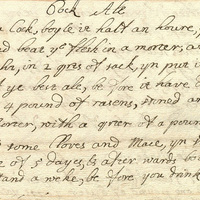 Cock Ale
a Cock, boyle it half an houre,
and beat ye flesh in a morter, a
in, in 2 qrts of sack, yn put i
ye but ale, be fore it have
4 pound of rasens, stoned an
morter, with a qrter of a pound
some Cloves and Mace, yn
of 5 dayes, & after wards bo
stand a weke, be fore you drink